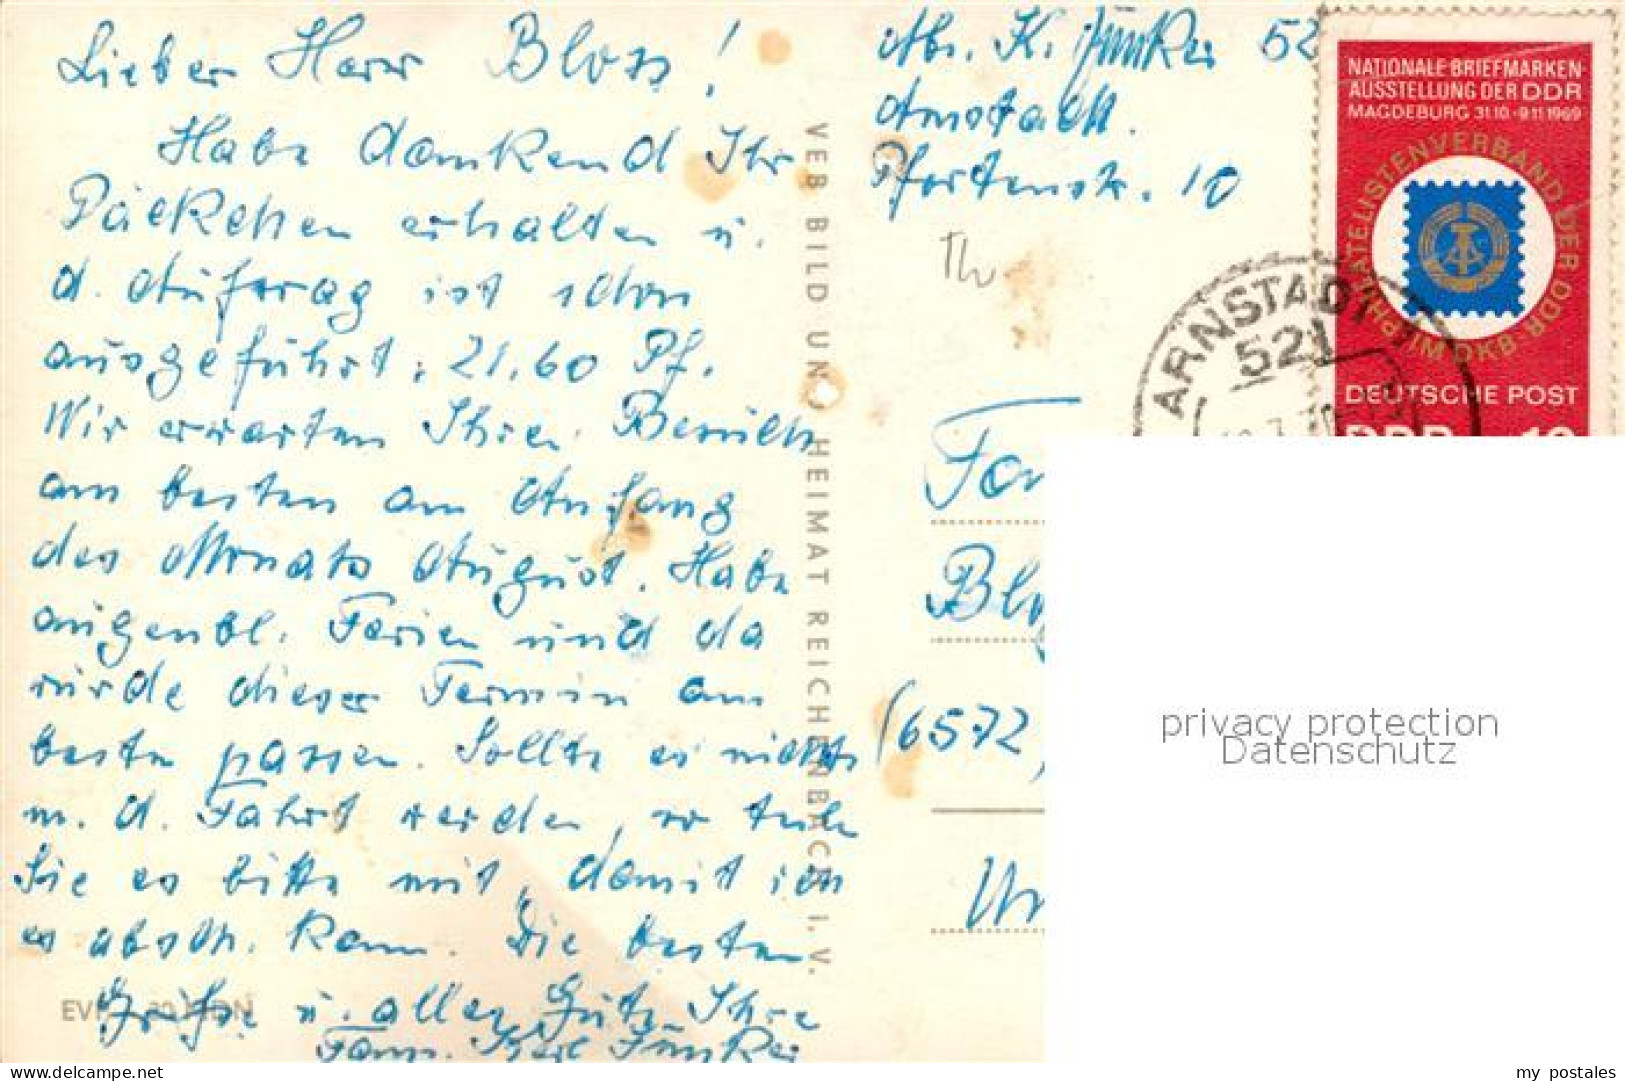 Lieber Herr Bloss!
Habe dankend Ihr
Päckchen erhalten u.
d. Auftrag ist schon
ausgeführt: 21.60 Pf.
Wir erwarten Ihren Besuch
am besten am Anfang
des Monats August. Habe
augenbl. Ferien und da
würde dieser Termin am
besten passen. Sollte es nichts
m. d. Fahrt werden, so teilen
Sie es bitte mit, damit ich
es absch. kann. Die besten
Grüße u. alles Gute Ihre
Fam. Karl Junker
EVP
VEB BILD UND HEIMAT REICHENBACH I. V.
Abs. K. Junker 52
Arnstadt.
Pfortenstr. 10
Th
NATIONALE BRIEFMARKEN-
AUSSTELLUNG DER DDR
MAGDEBURG 31.10.-9.11.1969
PHILATELISTENVERBAND DER DDR
IM DKB
DEUTSCHE POST
DDR 10
ARNSTADT 1
521
Fam
Blo
(6572)
privacy protection
Datenschutz
delcampe.net
my_postales